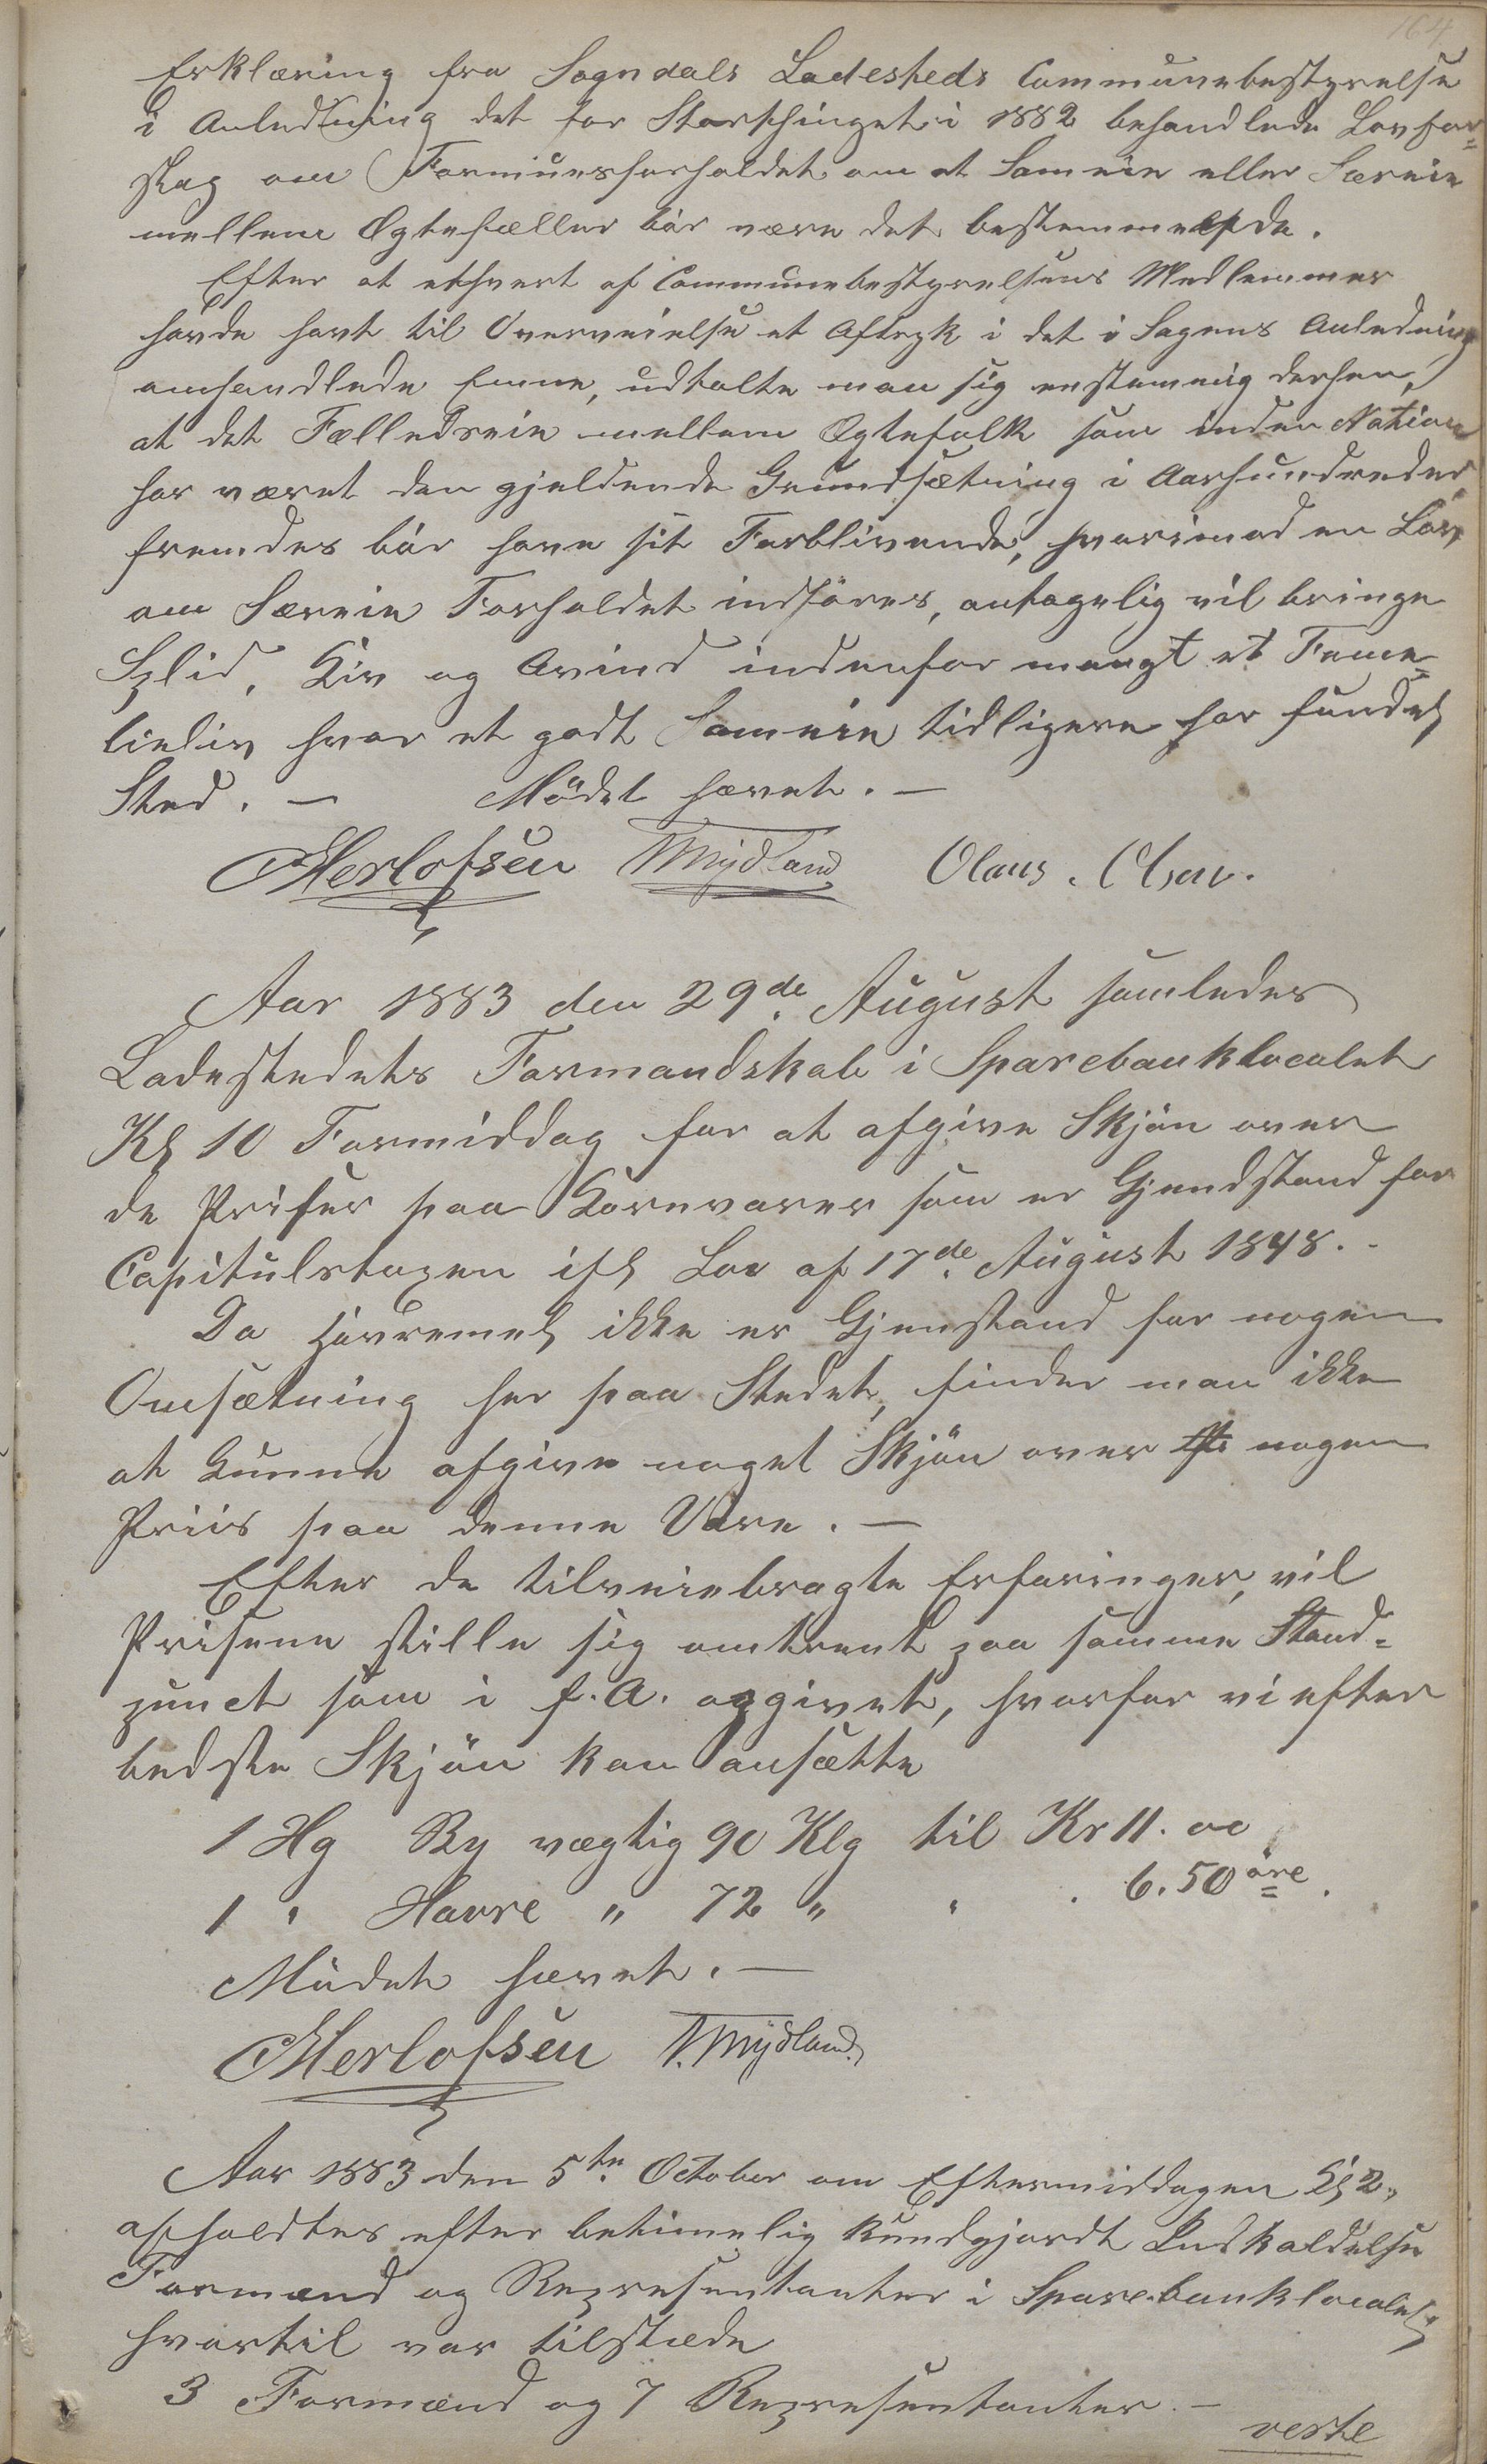 164
Erklæring fra Sogndals Ladesteds Communebestyrelse
i Anledning det for Storthinget i 1882 behandlede Lovfor=
slag om Formuesforholdet om et Sameie eller Særeie
mellem Ægtefæller bør være det bestemmende.
Efter at ethvert af Communebestyrelsens Medlemmer
havde havt til Overveielse et Aftryk i det i Sagens Anledning
omhandlede Emne, udtalte man sig enstemmig derhen,
at det Fælledseie mellem Ægtefolk som inden Nation
har været den gjeldende Grundsætning i Aarhundreder,
fremdes bør have sit Forblivende, hvorimod en Lov
om Særeie Forholdet indføres, antagelig vil bringe
Splid, Kiv og Avind indenfor mangt et Fame=
lieliv hvor et godt Sameie tidligere har fundet
Sted. — Mödet hævet. —
Herlofsen TMydland Olaus. Olsen.
Aar 1883 den 29de August samledes
Ladestedets Formandskab i Sparebanklocalet
Kl 10 Formiddag for at afgive Skjön over
de Priser paa Kornvarer som er Gjendstand for
Capitulstaxen ifl Lov af 17de August 1848.
Da Havremel ikke er Gjenstand for nogen
Omsætning her paa Stedet, finder man ikke
at kunne afgive noget Skjön over nogen
Priis paa denne Vare. —
Efter de tilveiebragte Erfaringer, vil
Prisene stille sig omtrent paa samme Stand=
punct som i f. A. opgivet, hvorfor vi efter
bedste Skjön kan ansætte
1 Hg Byg vægtig 90 Klg til Kr 11. 00
1 " Havre " 72 " " " 6.50 öre.
Mödet hævet. —
Herlofsen T.Mydland
Aar 1883 den 5te October om Eftermiddagen Kl 2,
afholdtes efter betimelig kundgjordt Indkaldelse
Formænd og Repræsentanter i Sparebanklocalet
hvortil var tilstæde
3 Formænd og 7 Repræsentanter. —
verte